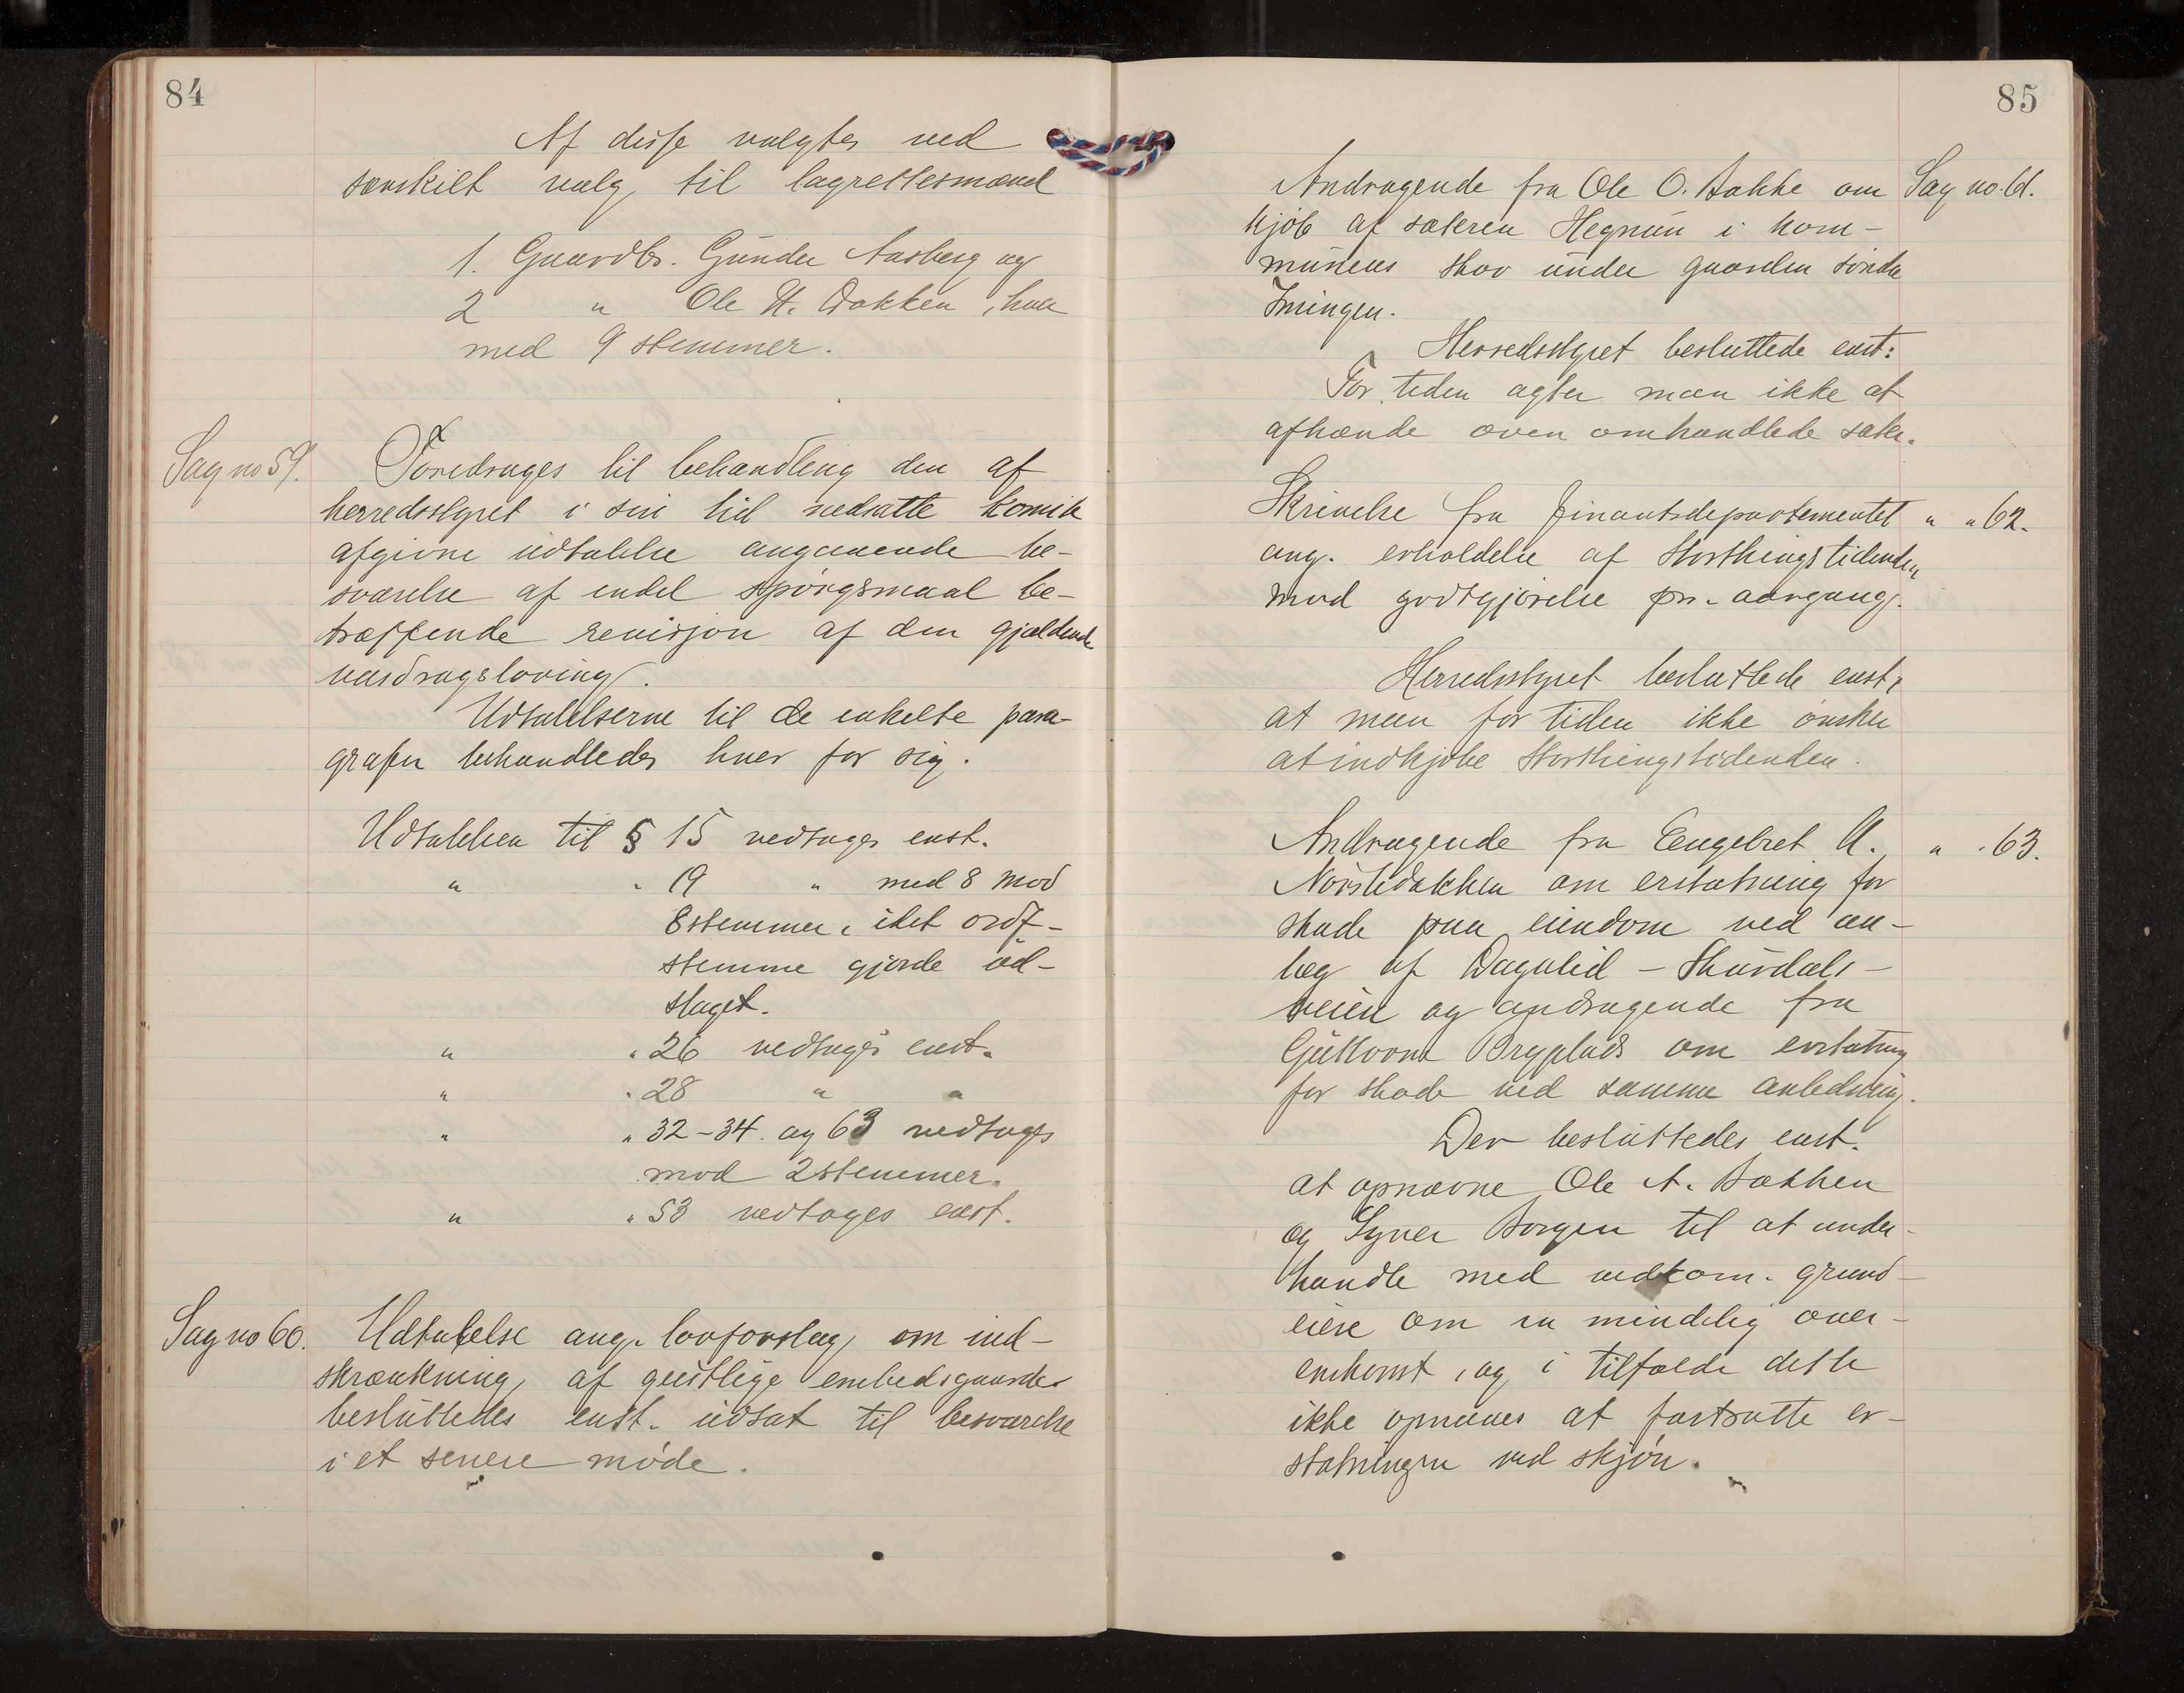 84
Af disse valgtes ved
særskilt valg til lagrettesmænd
1. Gaardbr. Gunder Aasberg og
2 " Ole H. Bakken, hver
med 9 stemmer.
Sag no 59. Foredrages til behandling den af
herredsstyret i sin tid nedsatte komite
afgivne udtalelse angaaende be-
svarelse af endel spörgsmaal be-
træffende revisjon af den gjældende
vasdragsloving.
Udtalelserne til de enkelte para-
grafer behandledes hver for sig.
Udtalelsen til § 15 vedtages enst.
" " 19 " med 8 mod
8 stemmer, idet ordf-
stemme gjorde ud-
slaget.
" " 26 vedtages enst.
" " 28 " "
" " 32-34 og 63 vedtages
mod 2 stemmer.
" " 53 vedtages enst.
Sag no 60. Udtalelse ang. lovforslag om ind-
skrænkning af geistlige embedsgaarder
besluttedes enst. udsat til besvarelse
i et senere möde.
85
Andragende fra Ole O. Bakke om Sag no. 61.
kjöb af sæteren Hegnun i kom-
munens skov under gaarden söndre
Imingen.
Herredsstyret besluttede enst:
For tiden agter man ikke at
afhænde oven omhandlede sæter.
Skrivelse fra Finantsdepartementet " " 62.
ang. erholdelse af Storthingstidenden
mod godtgjörelse pr. aargang.
Herredsstyret besluttede enst,
at man for tiden ikke önsker
at indkjöbe Storthingstidenden.
Andragende fra Engebret A. " " 63.
Nörstedakken om erstatning for
skade paa eiendom ved an-
læg af Dagalid - Skurdals-
veien og andragende fra
Gulborn Brygplads om erstatning
for skade ved samme anledning.
Der besluttedes enst.
at opnævne Ole A. Bakken
og Syver Borgen til at under-
handle med vedkom. grund-
eiere om en mindelig over-
enkomst, og i tilfælde dette
ikke opnaaes at fastsætte er-
statningen ved skjön.